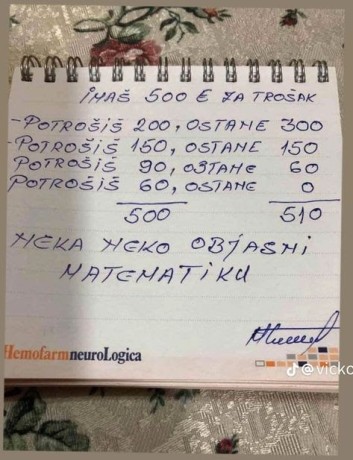 IMAŠ 500 E ZA TROŠAK
- POTROŠIŠ 200, OSTANE 300
- POTROŠIŠ 150, OSTANE 150
POTROŠIŠ 90, OSTANE 60
POTROŠIŠ 60, OSTANE 0
500 510
NEKA NEKO OBJASNI
MATEMATIKU
Hemofarm neuroLogica
@vicko